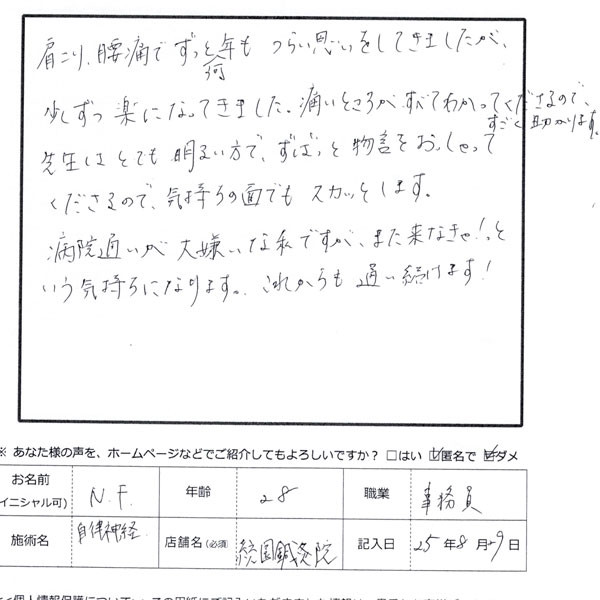 肩こり、腰痛でずっと何年もつらい思いをしてきましたが、
少しずつ楽になってきました。痛いところがすべてわかってくださるので、すごく助かります。
先生はとても明るい方で、ずばっと物言をおっしゃって
くださるので、気持ちの面でもスカッとします。
病院通いが大嫌いな私ですが、また来なきゃ!と
いう気持ちになります。これからも通い続けます!
※ あなた様の声を、ホームページなどでご紹介してもよろしいですか? □はい ☑匿名で ☑ダメ
お名前 (イニシャル可) N.F. 年齢 28 職業 事務員
施術名 自律神経 店舗名(必須) 鍼灸院 記入日 25年8月29日